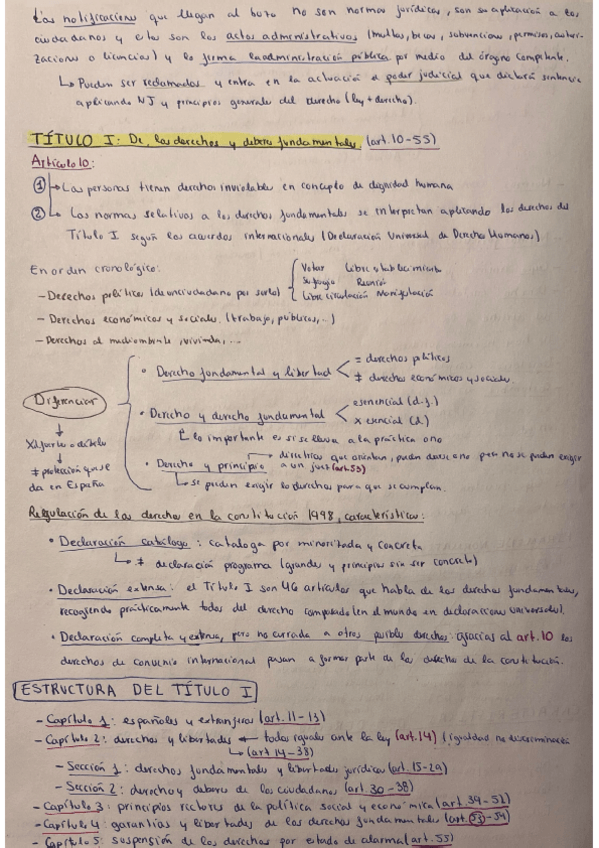 Las notificaciones que llegan al buzo no son normas jurídicas, son su aplicación a los
ciudadanos y estos son los actos administrativos (multas, becas, subvenciones, permisos, autori-
zaciones o licencias) y lo forma la administración pública por medio del órgano competente.
↳ Pueden ser reclamados y entra en la actuación el poder judicial que dictará sentencia
aplicando NJ y principios generales del derecho (ley + derecho).
TÍTULO I: De los derechos y deberes fundamentales (art. 10-55)
Artículo 10:
① Las personas tienen derechos inviolables en concepto de dignidad humana
② Las normas relativas a los derechos fundamentales se interpretan aplicando los derechos del
Título I según los acuerdos internacionales (Declaración Universal de Derechos Humanos)
En orden cronológico:
- Derechos políticos (de un ciudadano por serlo)
Votar Libre establecimiento
Sufragio Reunión
Libre circulación Manifestación
- Derechos económicos y sociales. (trabajo, públicos, ...)
- Derechos al medioambiente, vivienda, ...
Diferenciar
• Derecho fundamental y libertad
= derechos políticos
≠ derechos económicos y sociales.
• Derecho y derecho fundamental
esencial (d.f.)
x esencial (d.)
↳ lo importante es si se lleva a la práctica o no
≠ protección que se
da en España
• Derecho y principio → directrices que orientan, pueden darse o no pero no se pueden exigir
a un juez (art. 53)
↳ se pueden exigir los derechos para que se cumplan.
Regulación de los derechos en la constitución 1998, características:
• Declaración catálogo: cataloga por minorizada y concreta
↳ ≠ declaración programa (grandes y principios sin ser concreto)
• Declaración extensa: el Título I son 46 artículos que habla de los derechos fundamentales,
recogiendo prácticamente todos del derecho comparado (en el mundo en declaraciones universales).
• Declaración completa y extensa, pero no cerrada a otros posibles derechos: gracias al art. 10 los
derechos de convenio internacional pasan a formar parte de los derechos de la constitución.
ESTRUCTURA DEL TÍTULO I
- Capítulo 1: españoles y extranjeros (art. 11-13)
- Capítulo 2: derechos y libertades ← todos iguales ante la ley (art. 14) (igualdad no discriminación
↳ (art 14-38)
- Sección 1: derechos fundamentales y libertades jurídicas (art. 15-29)
- Sección 2: derechos y deberes de los ciudadanos (art 30-38)
- Capítulo 3: principios rectores de la política social y económica (art. 39-52)
- Capítulo 4: garantías y libertades de los derechos fundamentales (art. 53-54)
- Capítulo 5: suspensión de los derechos por estado de alarma (art. 55)